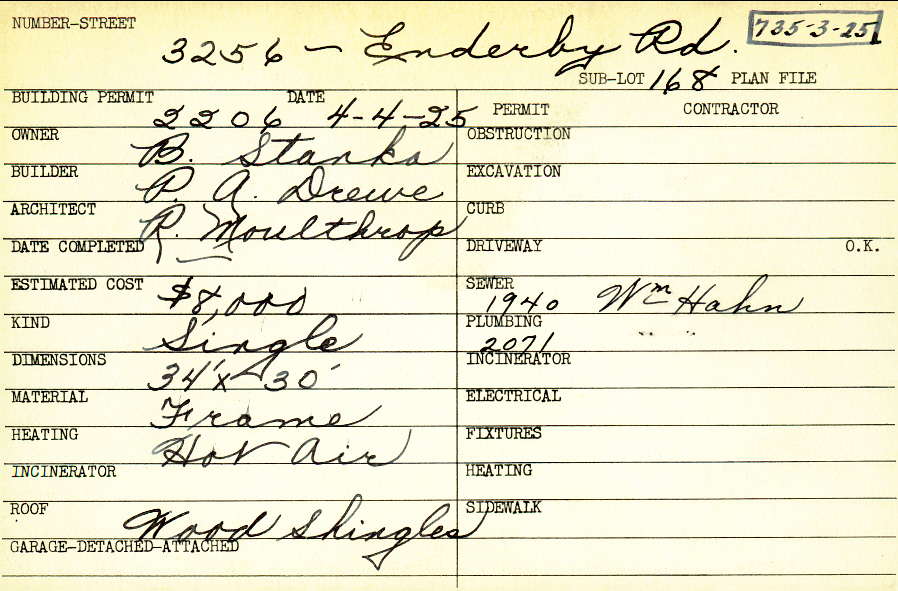 NUMBER-STREET 3256 - Enderby Rd. 735-3-25
SUB-LOT 168 PLAN FILE
BUILDING PERMIT 2206 DATE 4-4-25 PERMIT CONTRACTOR
OWNER B. Stanka OBSTRUCTION
BUILDER P. A. Drewe EXCAVATION
ARCHITECT R. Moulthrop CURB
DATE COMPLETED DRIVEWAY O.K.
ESTIMATED COST $8,000 SEWER 1940 Wm Hahn
KIND Single PLUMBING 2071 " "
DIMENSIONS 34' x 30' INCINERATOR
MATERIAL Frame ELECTRICAL
HEATING Hot Air FIXTURES
INCINERATOR HEATING
ROOF Wood Shingles SIDEWALK
GARAGE-DETACHED-ATTACHED